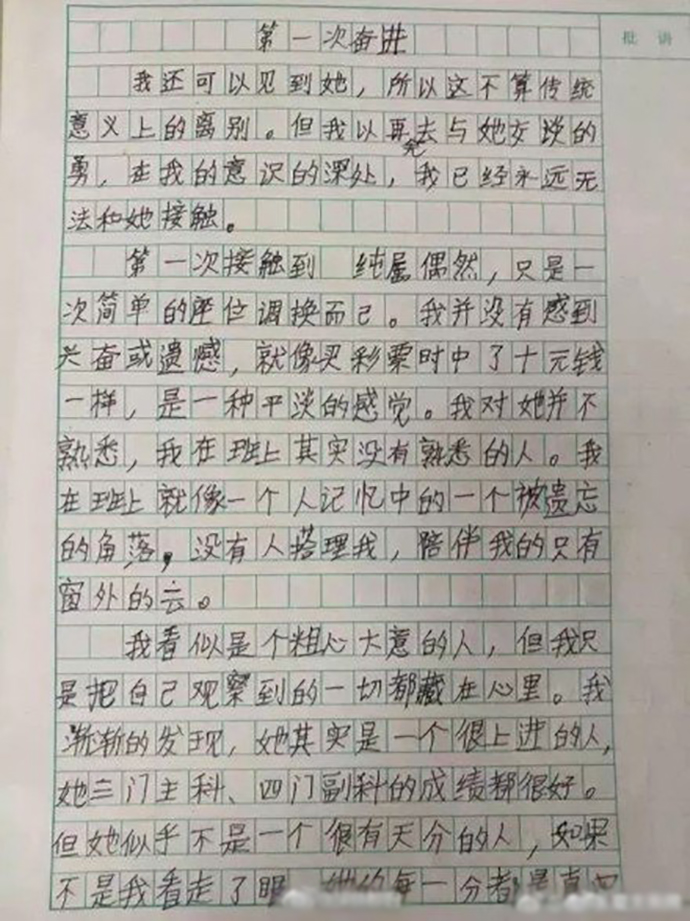 第一次奋进
批语
我还可以见到她，所以这不算传统
意义上的离别。但我以再去与她交谈的
勇，在我的意识的深处，我已经永远无
法和她接触。
第一次接触到 纯属偶然，只是一
次简单的座位调换而己。我并没有感到
兴奋或遗憾，就像买彩票时中了十元钱
一样，是一种平淡的感觉。我对她并不
熟悉，我在班上其实没有熟悉的人。我
在班上就像一个人记忆中的一个被遗忘
的角落，没有人搭理我，陪伴我的只有
窗外的云。
我看似是个粗心大意的人，但我只
是把自己观察到的一切都藏在心里。我
渐渐的发现，她其实是一个很上进的人，
她三门主科、四门副科的成绩都很好。
但她似乎不是一个很有天分的人，如果
不是我看走了眼，她的每一分都是真